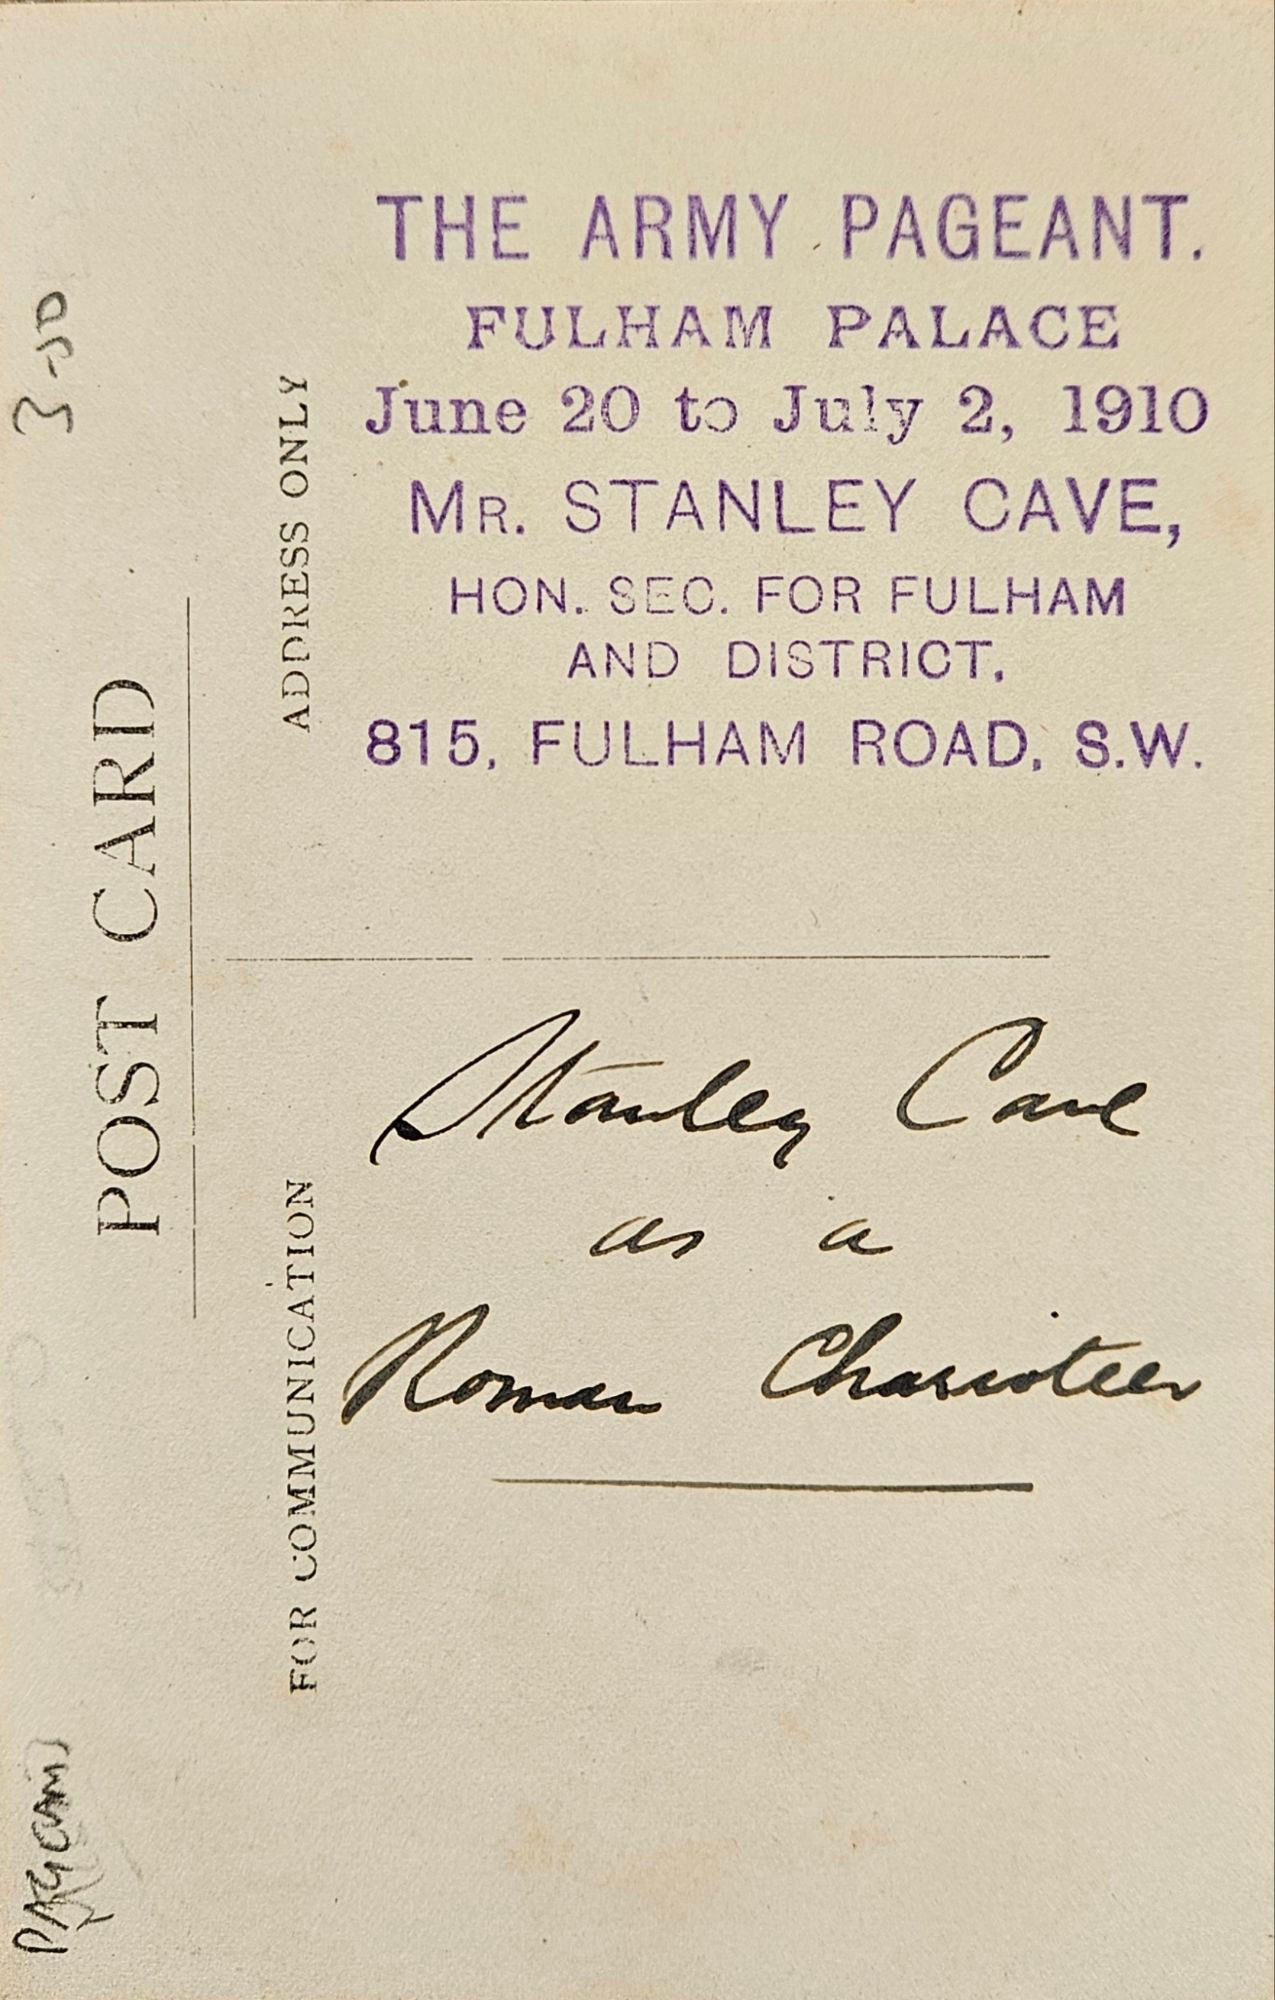 THE ARMY PAGEANT.
FULHAM PALACE
June 20 to July 2, 1910
MR. STANLEY CAVE,
HON. SEC. FOR FULHAM
AND DISTRICT,
815, FULHAM ROAD, S.W.
POST CARD
ADDRESS ONLY
FOR COMMUNICATION
Stanley Cave
as a
Roman Charioteer